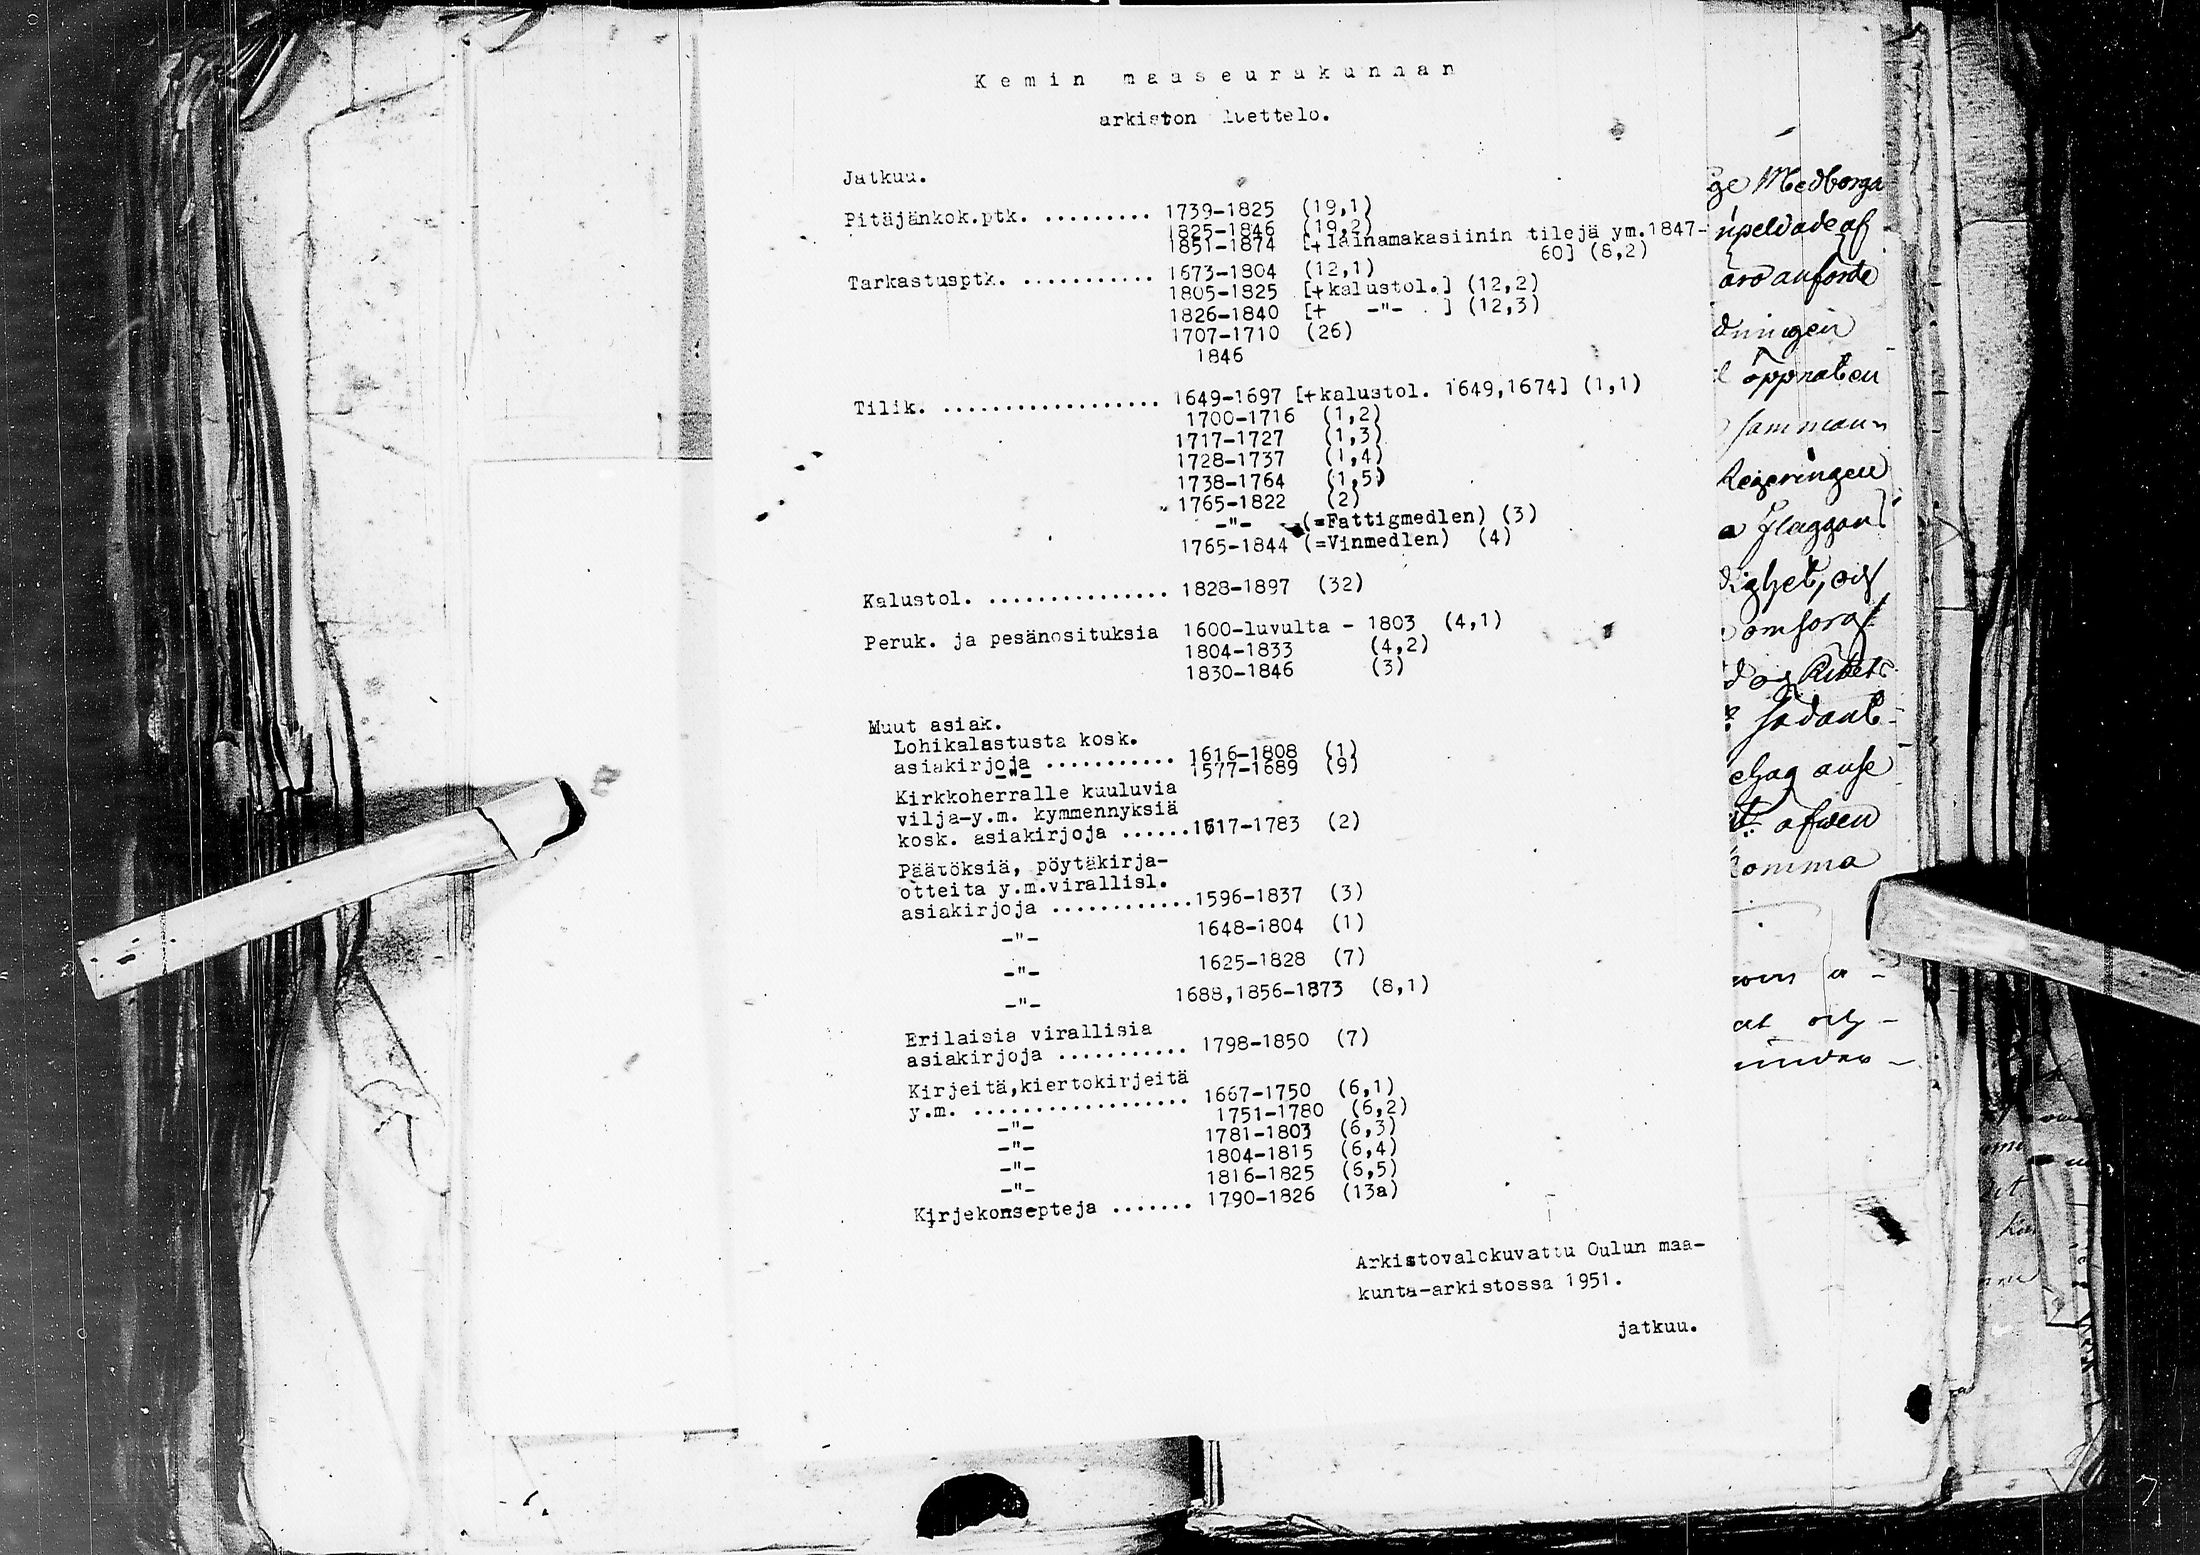 Kemin maaseurakunnan
arkiston luettelo.
Jatkuu.
Pitäjänkok.ptk. ......... 1739-1825 (19,1)
1825-1846 (19,2)
1851-1874 [+lainamakasiinin tilejä ym.1847-
60] (8,2)
Tarkastusptk. ............ 1673-1804 (12,1)
1805-1825 [+kalustol.] (12,2)
1826-1840 [+ -"- ] (12,3)
1707-1710 (26)
1846
Tilik. .................. 1649-1697 [+kalustol. 1649,1674] (1,1)
1700-1716 (1,2)
1717-1727 (1,3)
1728-1737 (1,4)
1738-1764 (1,5)
1765-1822 (2)
-"- (=Fattigmedlen) (3)
1765-1844 (=Vinmedlen) (4)
Kalustol. ............... 1828-1897 (32)
Peruk. ja pesänosituksia 1600-luvulta - 1803 (4,1)
1804-1833 (4,2)
1830-1846 (3)
Muut asiak.
Lohikalastusta kosk.
asiakirjoja ........... 1616-1808 (1)
-"- 1577-1689 (9)
Kirkkoherralle kuuluvia
vilja-y.m. kymmennyksiä
kosk. asiakirjoja ......1617-1783 (2)
Päätöksiä, pöytäkirja-
otteita y.m.virallisl.
asiakirjoja ............1596-1837 (3)
-"- 1648-1804 (1)
-"- 1625-1828 (7)
-"- 1688,1856-1873 (8,1)
Erilaisia virallisia
asiakirjoja ........... 1798-1850 (7)
Kirjeitä,kiertokirjeitä
y.m. ................... 1667-1750 (6,1)
-"- 1751-1780 (6,2)
-"- 1781-1803 (6,3)
-"- 1804-1815 (6,4)
-"- 1816-1825 (6,5)
Kirjekonsepteja ....... 1790-1826 (13a)
Arkistovalokuvattu Oulun maa-
kunta-arkistossa 1951.
jatkuu.
ge Medborga
dningen
öppnaten
samman
Regeringen
a flaggan
omsorg
sådant
afwen
omma